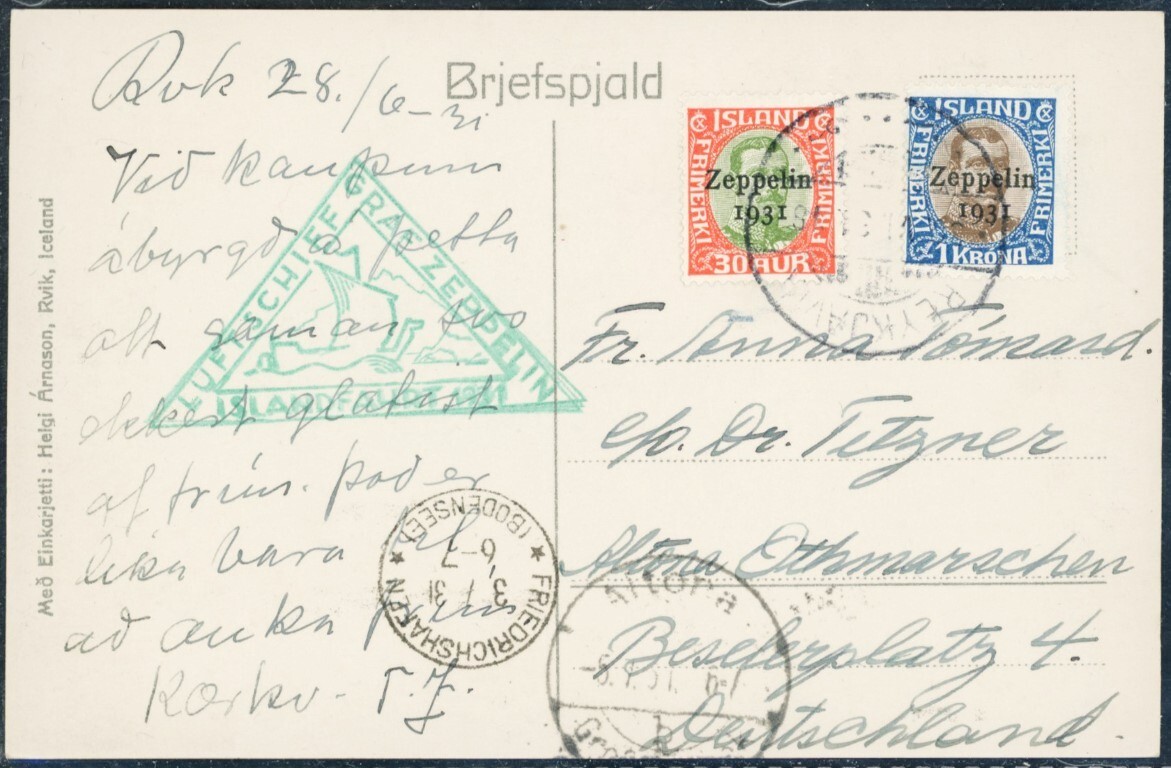 Brjefspjald
Rvk 28./6-31
Við kaupum
ábyrgð á þetta
alt saman svo
ekkert glatist
af frím. það er
líka bara
að auka
T.J.
Með Einkarjetti: Helgi Árnason, Rvik, Iceland
LUFTSCHIFF GRAF ZEPPELIN
ISLANDFAHRT 1931
ÍSLAND
FRIMERKI
FRIMERKI
Zeppelin
1931
30 AUR
ÍSLAND
FRIMERKI
FRIMERKI
Zeppelin
1931
1 KRÓNA
REYKJAVÍK
Fr. Anna Tómsard.
c/o. Dr. Titzner
Altona Othmarschen
Beselerplatz 4.
Deutschland
FRIEDRICHSHAFEN
(BODENSEE)
3.7.31
6-7
Altona